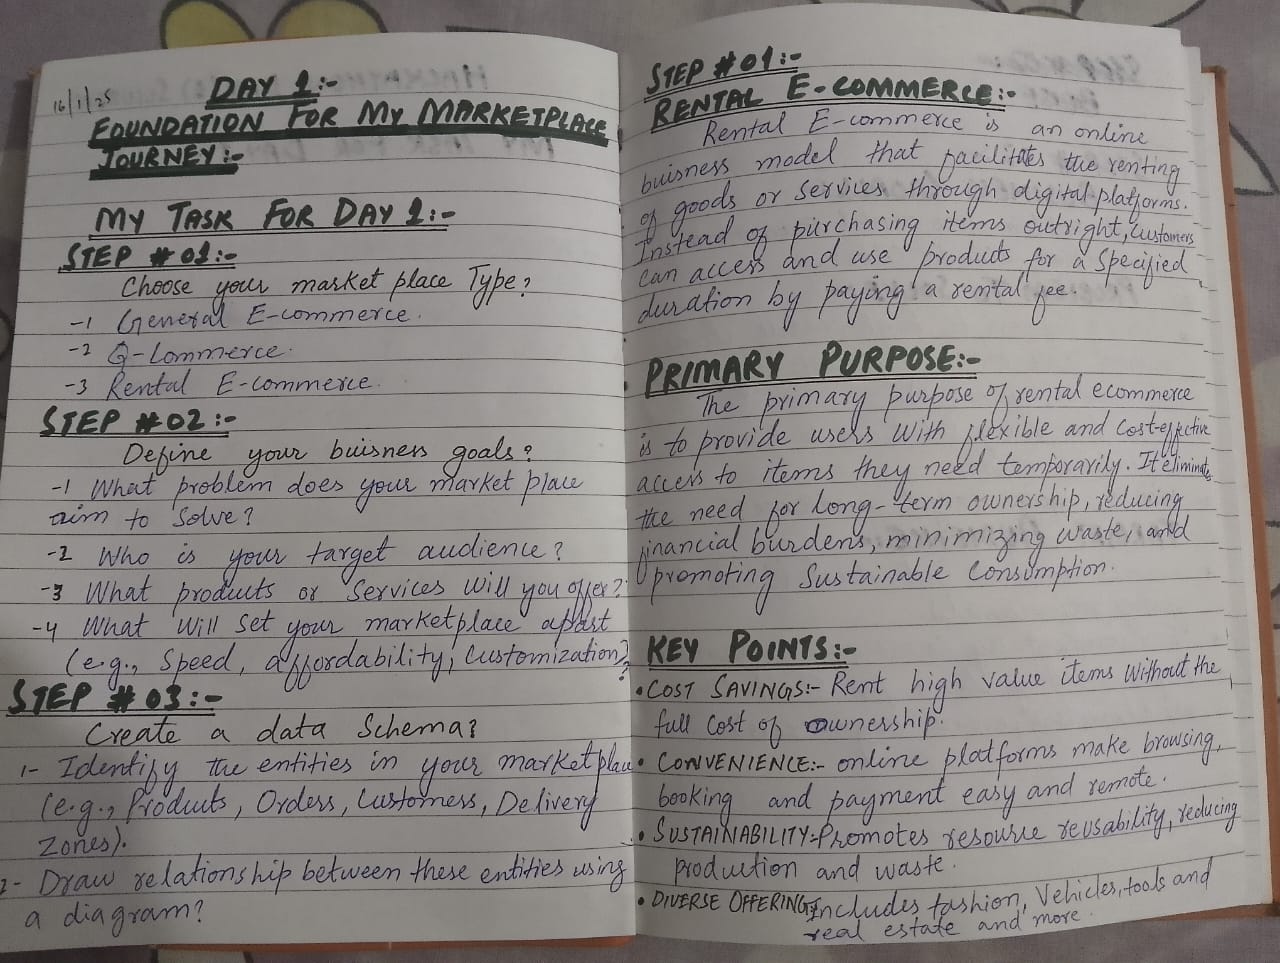 16/1/25
DAY 1:-
FOUNDATION FOR MY MARKETPLACE
JOURNEY:-
MY TASK FOR DAY 1:-
STEP # 01:-
Choose your market place Type?
-1 General E-commerce.
-2 Q-Commerce.
-3 Rental E-commerce.
STEP # 02:-
Define your buisness goals?
-1 What problem does your market place
aim to solve?
-2 Who is your target audience?
-3 What products or Services will you offer?
-4 What will set your marketplace apart
(e.g., Speed, affordability, Customization)?
STEP # 03:-
Create a data Schema?
1- Identify the entities in your marketplace
(e.g., Products, Orders, Customers, Delivery
Zones).
2- Draw relationship between these entities using
a diagram?
STEP # 01:-
RENTAL E-COMMERCE:-
Rental E-commerce is an online
buisness model that facilitates the renting
of goods or services through digital platforms.
Instead of purchasing items outright, customers
can access and use products for a specified
duration by paying a rental fee.
PRIMARY PURPOSE:-
The primary purpose of rental ecommerce
is to provide users with flexible and cost-effective
access to items they need temporarily. It eliminates
the need for long-term ownership, reducing
financial burdens, minimizing waste, and
promoting Sustainable Consumption.
KEY POINTS:-
• COST SAVINGS:- Rent high value items without the
full cost of ownership.
• CONVENIENCE:- online platforms make browsing,
booking and payment easy and remote.
• SUSTAINABILITY:- Promotes resource reusability, reducing
production and waste.
• DIVERSE OFFERING:- Includes fashion, Vehicles, tools and
real estate and more.